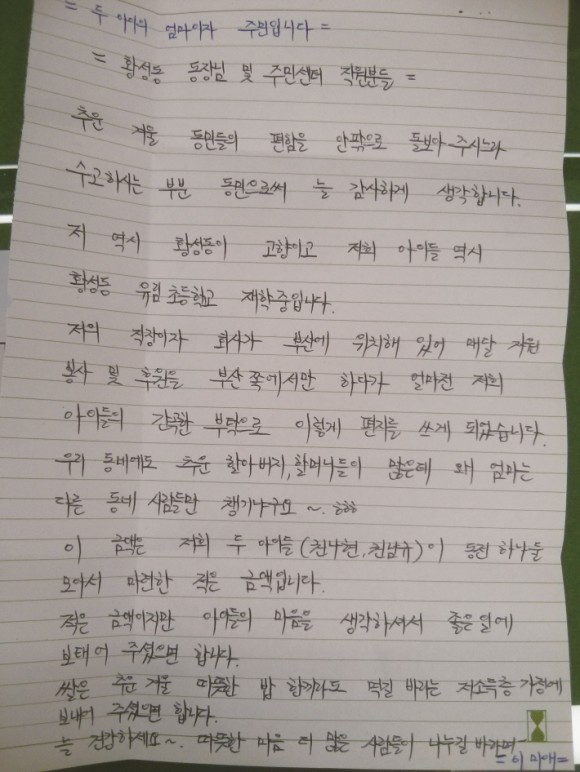 = 두 아이의 엄마이자 주민입니다 =
= 황성동 동장님 및 주민센터 직원분들 =
추운 겨울 동민들의 편함을 안팎으로 돌보아 주시느라
수고하시는 부분 동민으로써 늘 감사하게 생각합니다.
저 역시 황성동이 고향이고 저희 아이들 역시
황성동 유림초등학교 재학중입니다.
저의 직장이자 회사가 부산에 위치해 있어 매달 자원
봉사 및 후원을 부산쪽에서만 하다가 얼마전 저희
아이들의 간곡한 부탁으로 이렇게 편지를 쓰게 되었습니다.
우리 동네에도 추운 할아버지, 할머니들이 많은데 왜 엄마는
다른 동네 사람들만 챙기냐구요~. ㅎㅎㅎ
이 금액은 저희 두 아이들 (친나현, 친남규)이 동전 하나둘
모아서 마련한 적은 금액입니다.
적은 금액이지만 아이들의 마음을 생각하셔서 좋은일에
보태어 주셨으면 합니다.
쌀은 추운 겨울 따뜻한 밥 한끼라도 먹길 바라는 저소득층 가정에
보내어 주셨으면 합니다.
늘 건강하세요~. 따뜻한 마음 더 많은 사람들이 나누길 바라며
= 이미애 =